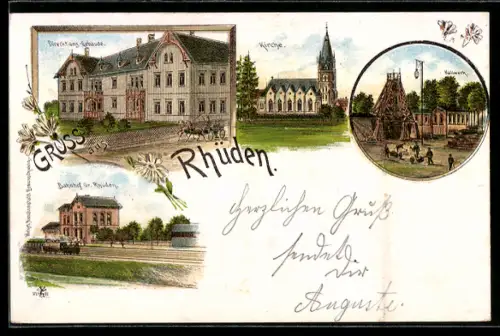 Direktions-Gebäude.
Kirche.
Kaliwerk.
GRUSS
aus
Rhüden.
Bahnhof Gr. Rhüden.
herzlichen Gruß
sendet
Dir
Auguste.